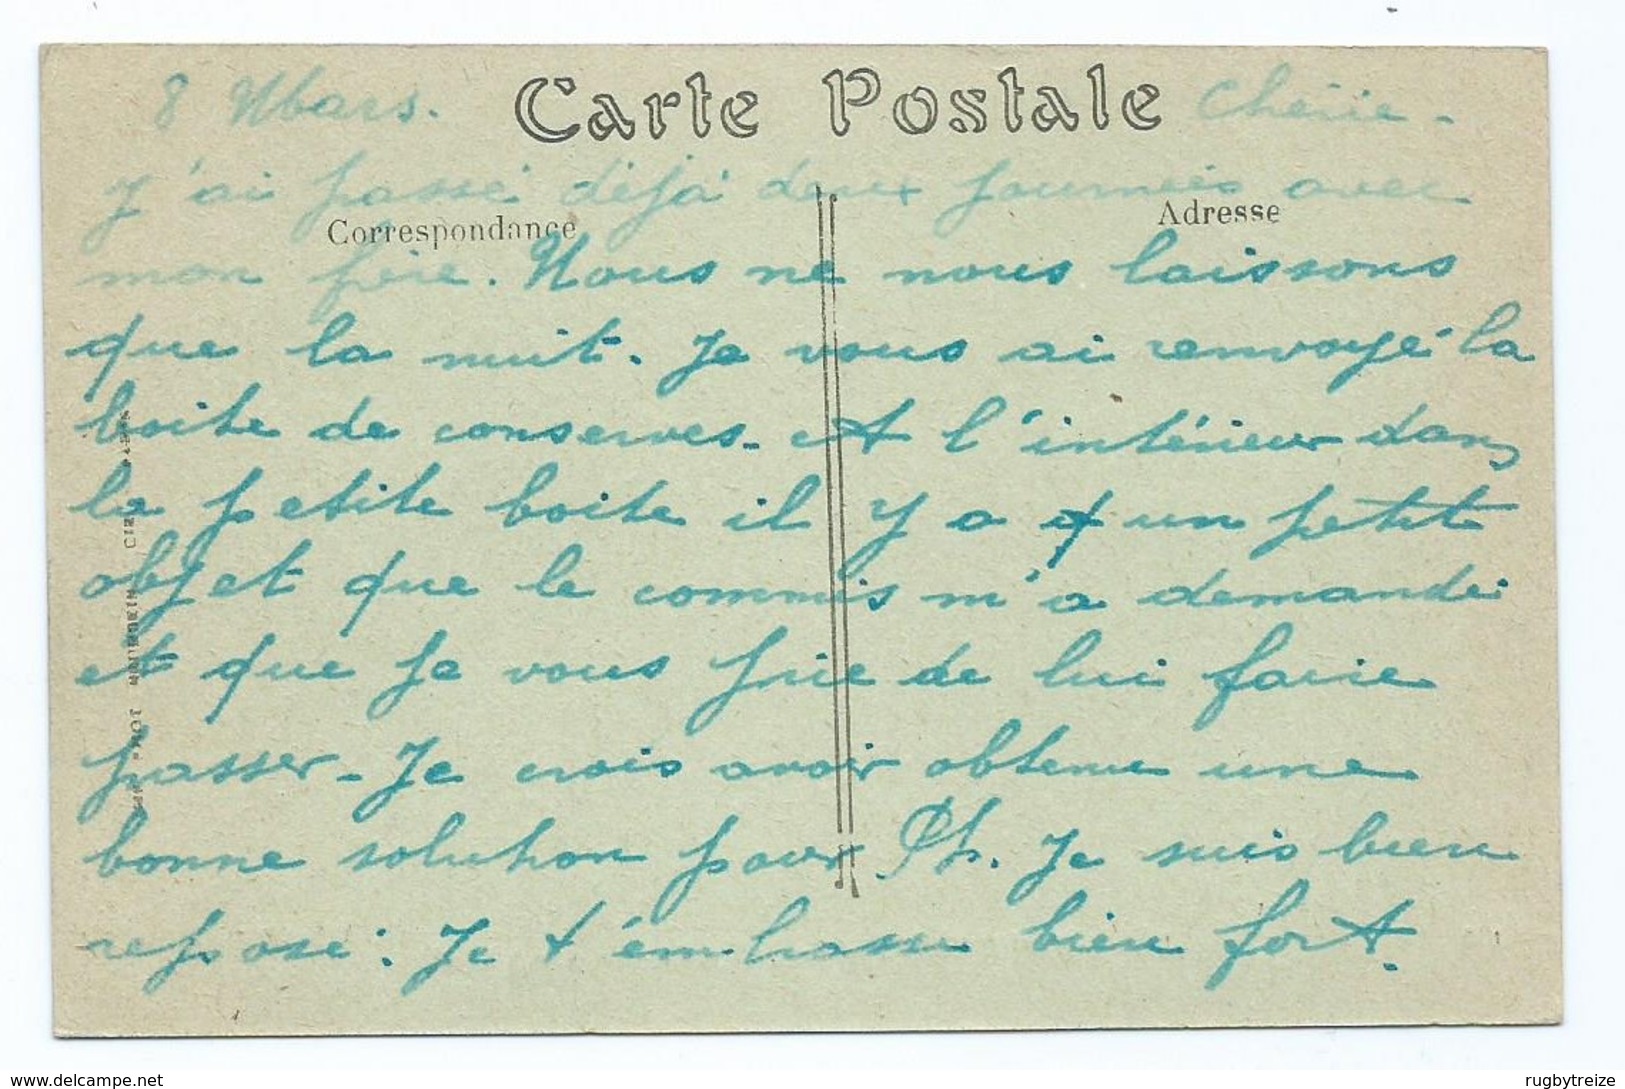 8 Mars. Carte Postale Chérie -
J'ai passé déjà deux journées avec
Correspondance Adresse
mon père. Nous ne nous laissons
que la nuit. Je vous ai renvoyé la
boite de conserves - et l'intérieur dans
la petite boite il y a un petit
objet que le commis m'a demandé
et que je vous prie de lui faire
passer - Je crois avoir obtenu une
bonne solution pour Ph. Je suis bien
reposé. Je t t'embrasse bien fort.
www.delcampe.net rugbytreize